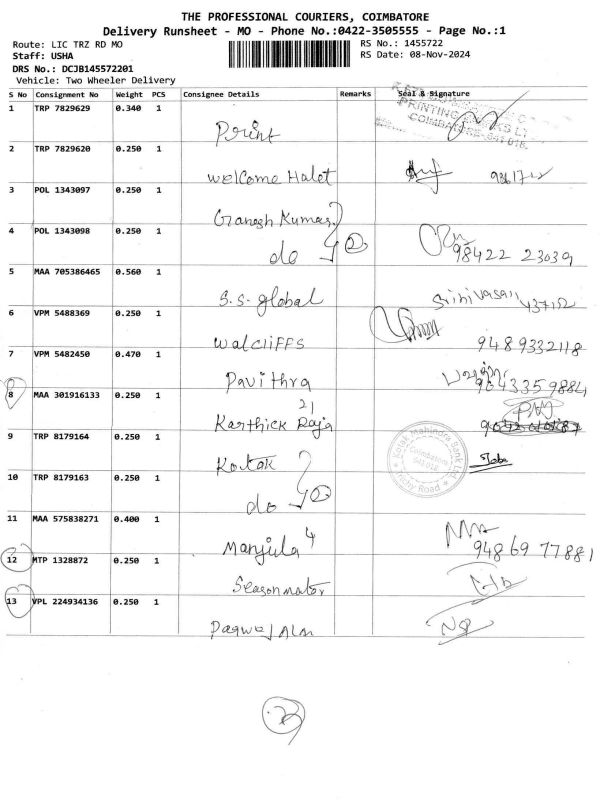 THE PROFESSIONAL COURIERS, COIMBATORE
Delivery Runsheet - MO - Phone No.:0422-3505555 - Page No.:1
Route: LIC TRZ RD MO
RS No.: 1455722
Staff: USHA
RS Date: 08-Nov-2024
DRS No.: DCJB145572201
Vehicle: Two Wheeler Delivery
S No Consignment No Weight PCS Consignee Details Remarks Seal & Signature
1 TRP 7829629 0.340 1
PRINTING
COIMBATORE-641 018.
Print
2 TRP 7829620 0.250 1
Welcome Halot
3 POL 1343097 0.250 1
Ganesh Kumar
4 POL 1343098 0.250 1
do 2
98422 23039
5 MAA 705386465 0.560 1
S.S. global
Srinivasan
6 VPM 5488369 0.250 1
Walcliffs
9489332118
7 VPM 5482450 0.470 1
Pavithra
9643359884
8 MAA 301916133 0.250 1
21
Karthick Raja
9 TRP 8179164 0.250 1
Kotak
Kotak Mahindra Bank Ltd.
Coimbatore
641 018
Trichy Road
10 TRP 8179163 0.250 1
do 2
11 MAA 575838271 0.400 1
Manjula 4
94869 77881
12 MTP 1328872 0.250 1
Seasonmator
13 VPL 224934136 0.250 1